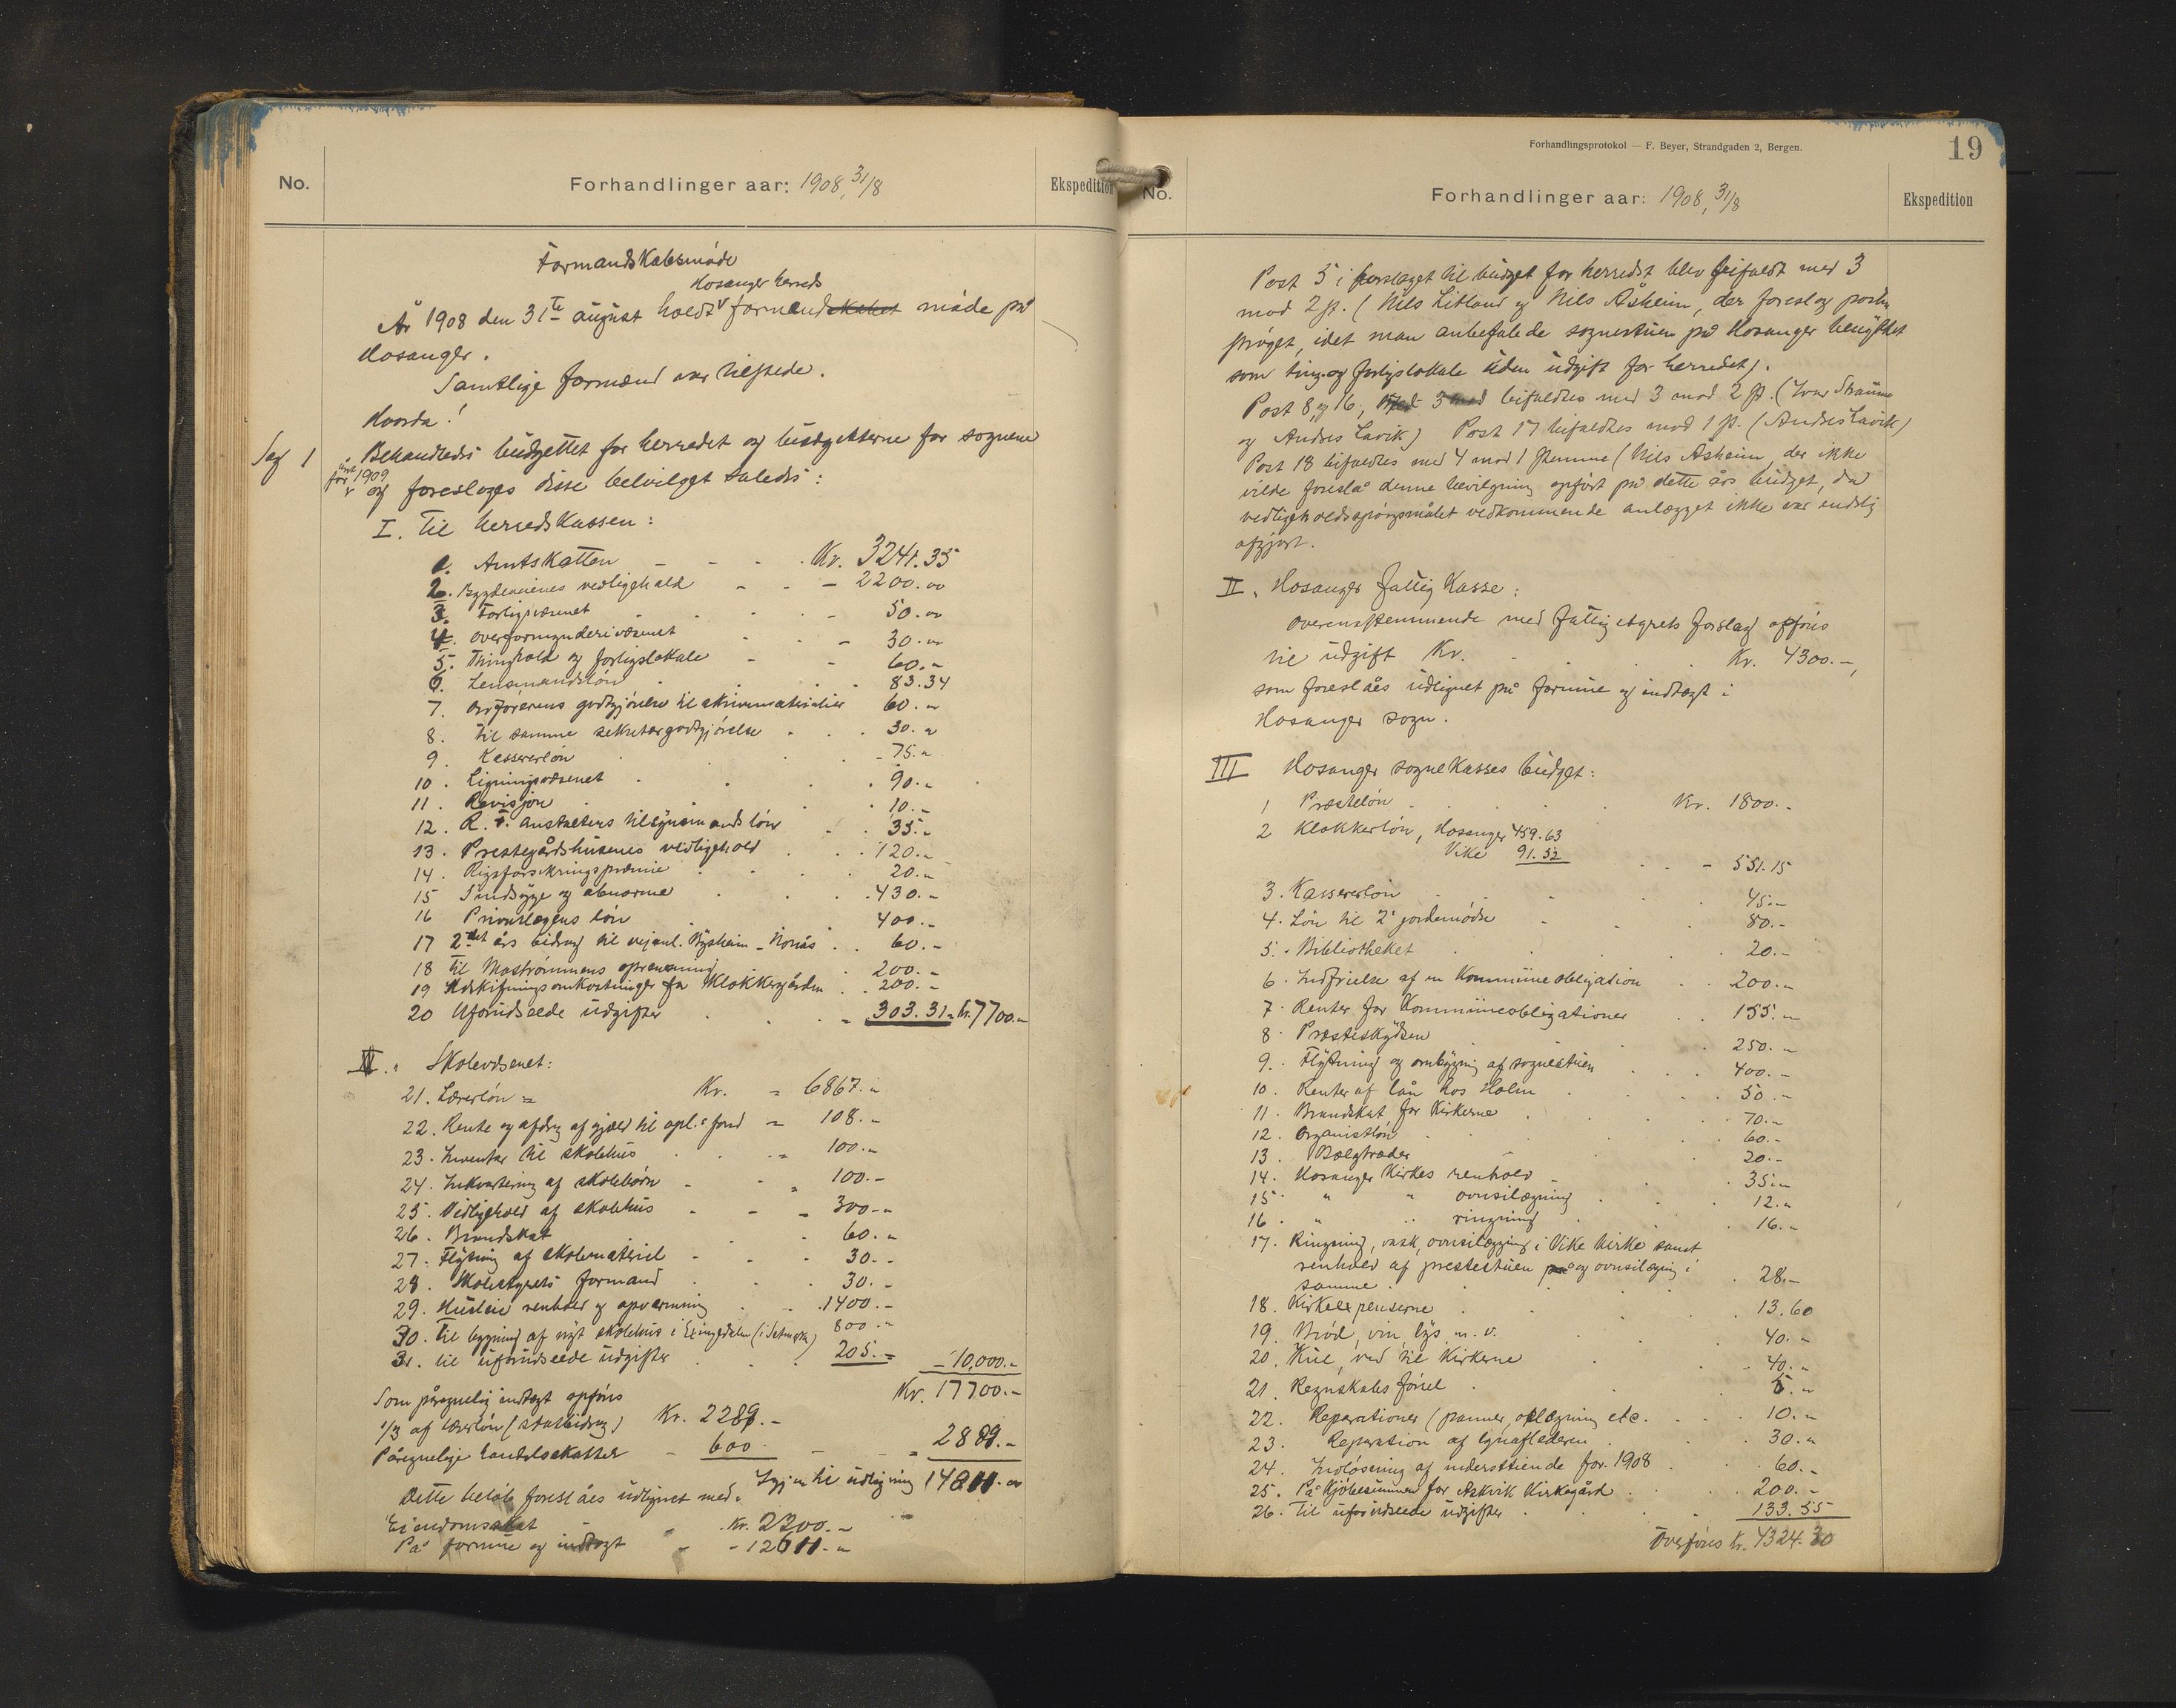 No.
Forhandlinger aar: 1908, 31/8
Ekspedition
Formandskabsmøde
Hosanger herreds
År 1908 den 31te august holdt formandskabet møde på
Hosanger.
Samtlige formænd var tilstede.
Hvorda!
Sag 1
Behandledes budgettet for herredet og budgetterne for sognene
året
for 1909
og foresloges disse belvilget saledes:
I. Til herredskassen:
1. Amtskatten - - - Kr. 3241.35
2. Bygdeveienes vedligehold - - - 2200.00
3. Forligvæsenet - 50.00
4. Overformynderivæsenet - 30.00
5. Thinghold og forligslokale - - 60.-
6. Lensmandsløn 83.34
7. Ordførerens godtgjørelse til skrivematerialier 60.-
8. Til samme sekretærgodtgjørelse 30.-
9. Kassererløn - 75.-
10. Ligningsvæsenet 90.-
11. Revisjon 10.-
12. R. V. anstaltens tilsynsmands løn 35.-
13. Prestegårdshusenes vedligehold 120.-
14. Rigsforsikringspræmie 20.-
15 Sindsyge og abnorme 430.-
16 Privatlægens løn 400.-
17 2det års bidrag til vejanl. Bysheim - Nonås 60.-
18 Til Mostrømmens oprensning 200.-
19 Udskiftningsomkostninger for Klokkergården 200.-
20 Uforudseede udgifter - 303.31 - Kr. 7700.-
II. Skolevæsenet:
21. Lærerløn = Kr. - 6867.-
22. Rente og afdrag af gjæld til opl.s fond - 108.-
23. Inventar til skolehus 100.-
24. Inkvartering af skolebørn - 100.-
25. Vedligehold af skolehus - - - 300.-
26. Brandskat 60.-
27. Flytning af skolemateriel - - 30.-
28. Skolestyrets formand 30.-
29. Husleie renhold og opvarmning 1400.-
30. Til bygning af nyt skolehus i Exingedalen (i Setmark) 800.-
31. til uforudseede udgifter 205.- - 10,000.-
Kr. 17700.-
Som påregnelig indtægt opføres
1/3 af lærerløn (statsbidrag) Kr. 2289.-
Påregnelige handelsskatter - 600.- - - 2889.-
Igjen til udligning 14811.-
Dette beløb foreslåes udlignet med:
Eiendomsskat Kr. 2200.-
På formue og indtægt - - 12611.-
Forhandlingsprotokol — F. Beyer, Strandgaden 2, Bergen.
19
No.
Forhandlinger aar: 1908, 31/8
Ekspedition
Post 5 i forslaget til budget for herredet blev bifaldt med 3
mod 2 st. (Nils Litland og Nils Åsheim, der foreslog posten
strøget, idet man anbefalede sognestuen på Hosanger benyttet
som ting- og forligslokale uden udgift for herredet).
Post 8 og 16, bifaldtes med 3 mod 2 st. (Ivar Straume
og Andres Lavik) Post 17 bifaldtes mod 1 st. (Andres Lavik)
Post 18 bifaldtes med 4 mod 1 stemme (Nils Åsheim, der ikke
vilde foreslå denne bevilgning opført på dette års budget, da
vedligeholdsspørgsmålet vedkommende anlægget ikke var endelig
afgjort.
II. Hosanger fattigkasse:
Overensstemmende med fattigstyrets forslag opføres
til udgift Kr. Kr. 4300.-,
som foreslåes udlignet på formue og indtægt i
Hosanger sogn.
III Hosanger sognekasses budget:
1 Presteløn Kr. 1800.-
2 Klokkerløn, Hosanger 459.63
Vike 91.52 - 551.15
3. Kassererløn 45.-
4. Løn til 2 jordemødre 80.-
5. Bibliotheket 20.-
6. Indfrielse af en Kommuneobligation 200.-
7. Renter for Kommuneobligationer 155.-
8. Præsteskydsen 250.-
9. Flytning og ombygning af sognestuen 400.-
10. Renter af lån hos Holm 50.-
11. Brandskat for Kirkerne 70.-
12. Organistløn 60.-
13. Bælgtræder 20.-
14. Hosanger Kirkes renhold 35.-
15. " " ovnsilægning 12.-
16. " " ringning 16.-
17. Ringning, vask, ovnsilægging i Vike kirke samt
renhold af prestestuen og ovnsilægning i
samme 28.-
18. Kirkeexpenserne 13.60
19. Brød, vin, lys m. v. 40.-
20. Kul, ved til Kirkerne 40.-
21. Regnskabsførsel 5.-
22. Reparationer (panner, oplægning etc. 10.-
23. Reparation af lynaflederen 30.-
24. Indløsning af understtiende for 1908 60.-
25. På Kjøbesummen for Askvik Kirkegård 200.-
26. Til uforudseede udgifter 133.55
Overføres Kr. 4324.30